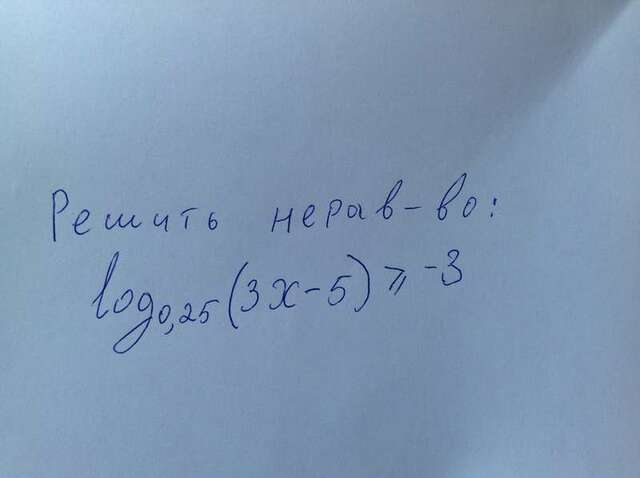 Решить нерав-во:
log₀,₂₅(3x-5) ⩾ -3